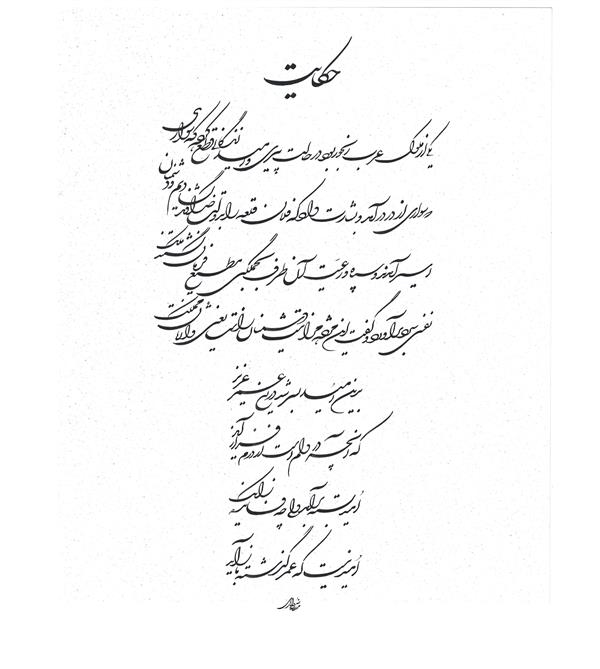 حکایت
یکی از ملوک عرب رنجور بود در حالت پیری و امید زندگانی قطع کرده که سواری
سواری از در درآمد و بشارت داد که فلان قلعه را به دولت خداوند گشادیم و دشمنان
اسیر آمدند و سپاه و رعیت آن طرف بجملگی مطیع فرمان گشتند ملک
نفسی سرد برآورد و گفت این مژده مرا نیست دشمنانم راست یعنی وارثان مملکت
برین امید بسر شد دریغ عمر عزیز
که آنچه در دلم است از درم فراز آید
امید بسته برآمد ولی چه فایده زانک
امید نیست که عمر گذشته باز آید